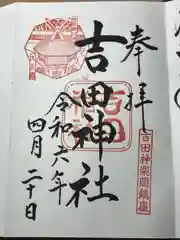 奉拝
吉田神社
令和六年
四月二十日
吉田神楽岡鎮座